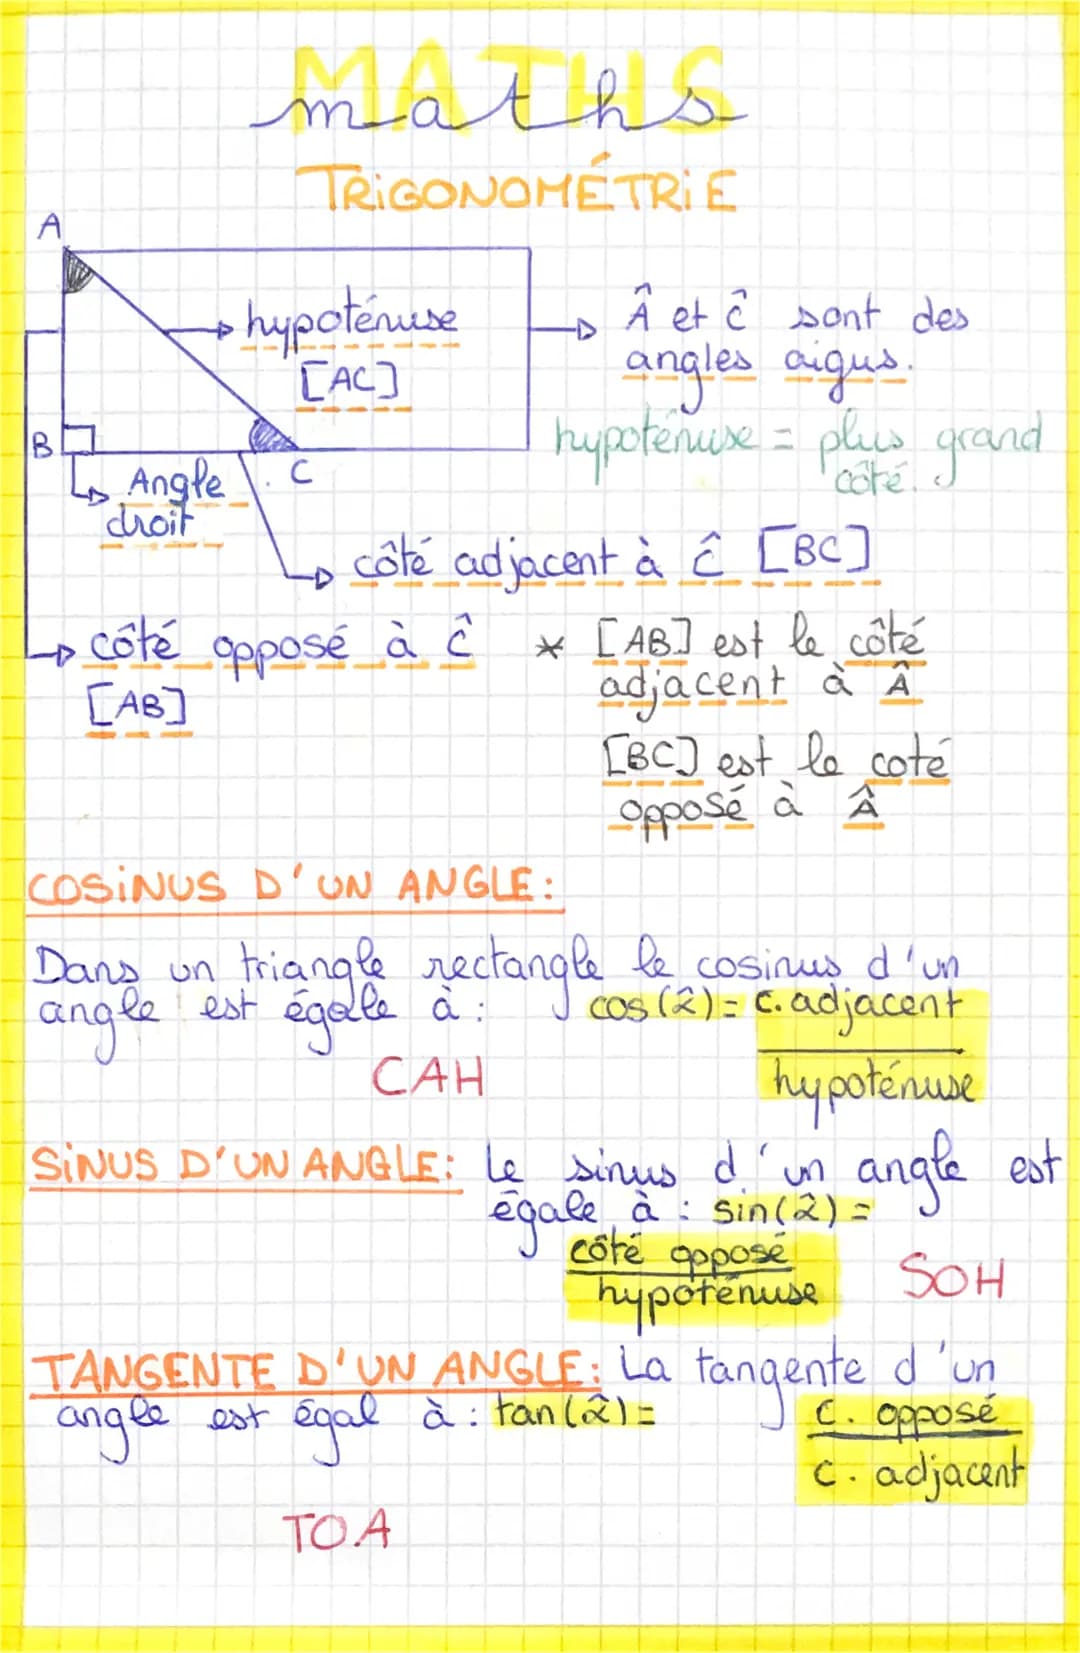 MATHS
maths
TRiGONOMÉTRiE
A
hypoténuse
[AC]
Â et Ĉ sont des
angles aigus.
hypoténuse = plus grand
côté.
B
C
Angle
droit
côté adjacent à Ĉ [BC]
côté opposé à Ĉ
[AB]
* [AB] est le côté
adjacent à Â
[BC] est le coté
opposé à Â
COSiNUS D'UN ANGLE:
Dans un triangle rectangle le cosinus d'un
angle est égale à : cos(2̂) = c. adjacent
hypoténuse
CAH
SiNUS D'UN ANGLE: Le sinus d'un angle est
égale à : sin(2̂) =
côté opposé
hypoténuse
SOH
TANGENTE D'UN ANGLE: La tangente d'un
angle est égal à : tan(2̂) = c. opposé
c. adjacent
TOA